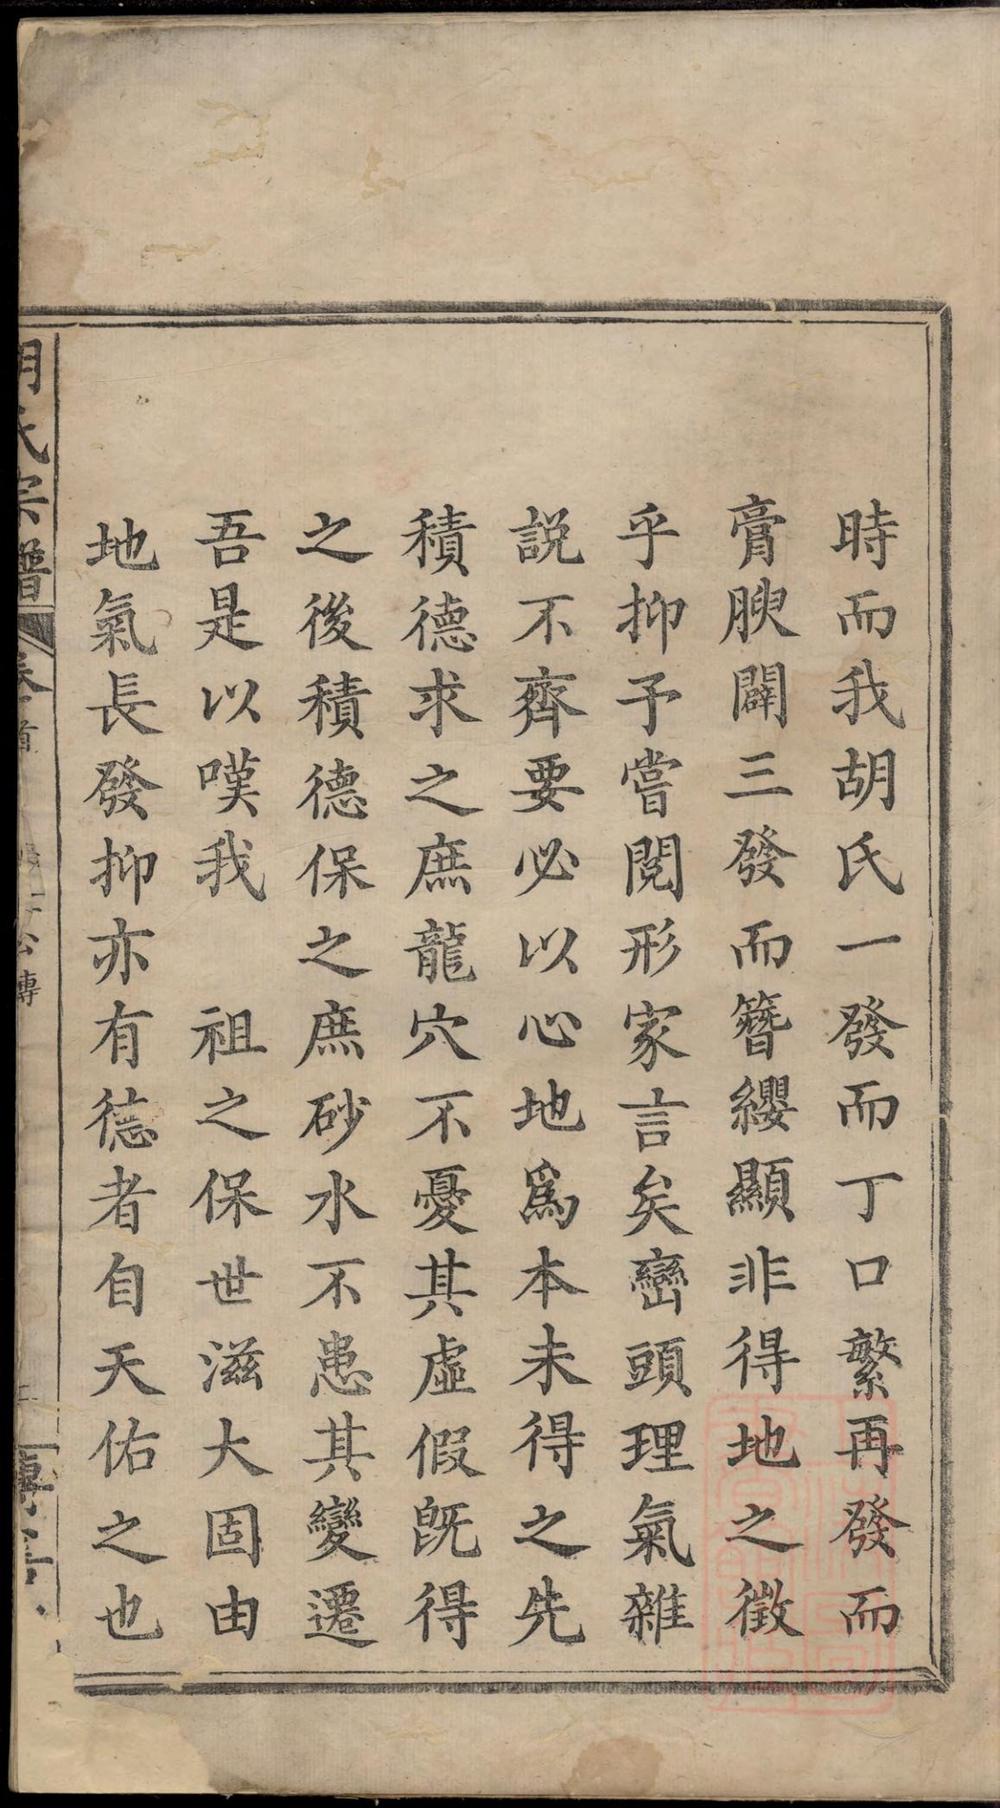 時而我胡氏一發而丁口繁再發而
膏腴闢三發而簪纓顯非得地之徵
乎抑予嘗閱形家言矣巒頭理氣雜
説不齊要必以心地為本未得之先
積德求之庶龍穴不憂其虛假既得
之後積德保之庶砂水不患其變遷
吾是以嘆我　祖之保世滋大固由
地氣長發抑亦有德者自天佑之也
胡氏宗譜
卷首
公傳